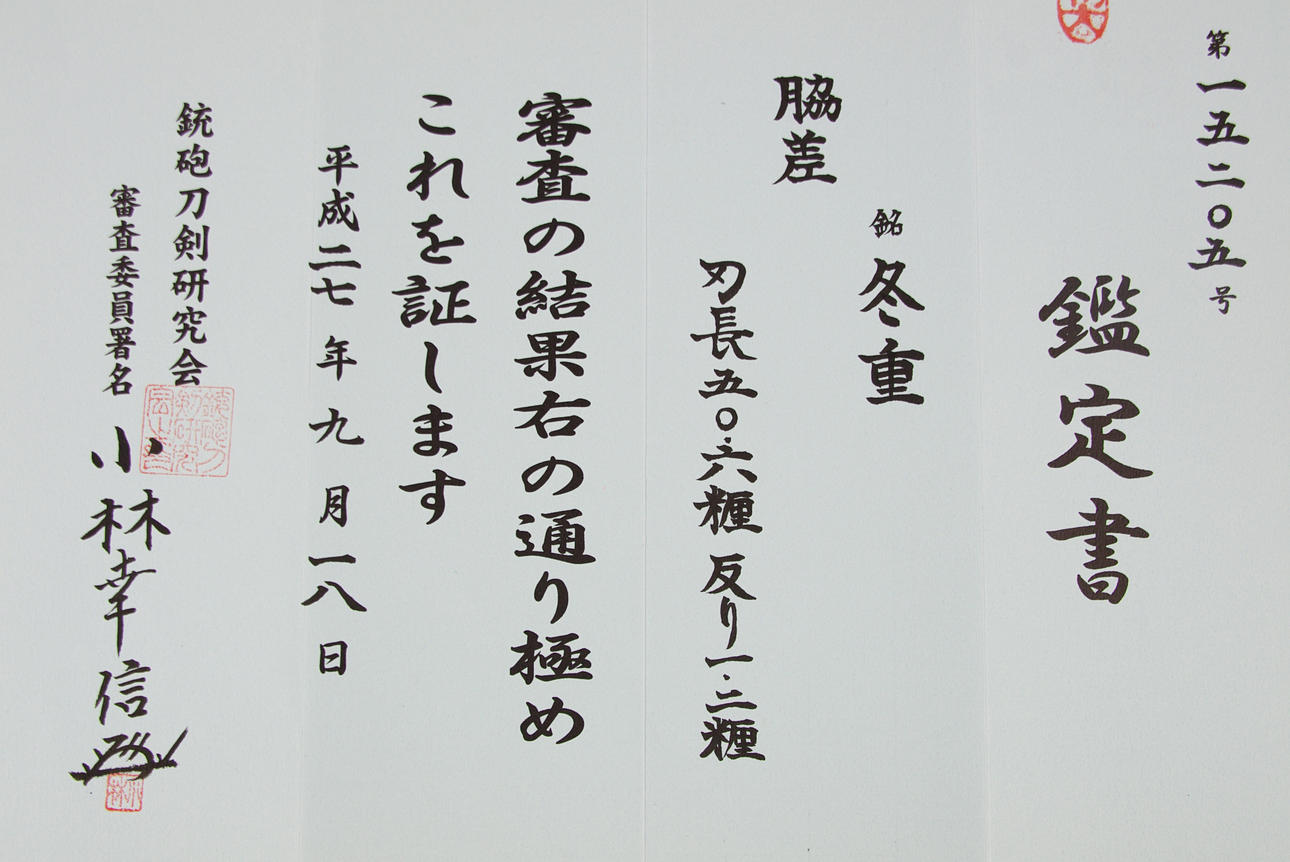 第一五二〇五号
鑑定書
脇差
銘 冬重
刃長五〇・六糎 反り一・二糎
審査の結果右の通り極め
これを証します
平成二七年九月一八日
銃砲刀剣研究会
審査委員署名 小林幸信